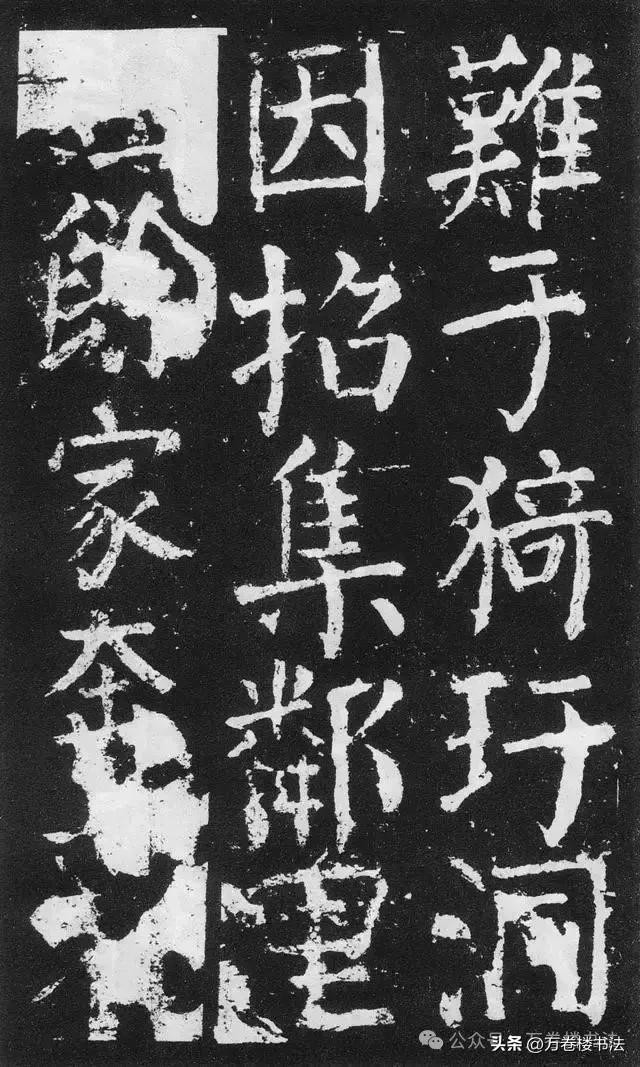 難于猗玗洞
因招集鄰里
餘家奔
公众号 · 万卷楼书法
头条 @万卷楼书法